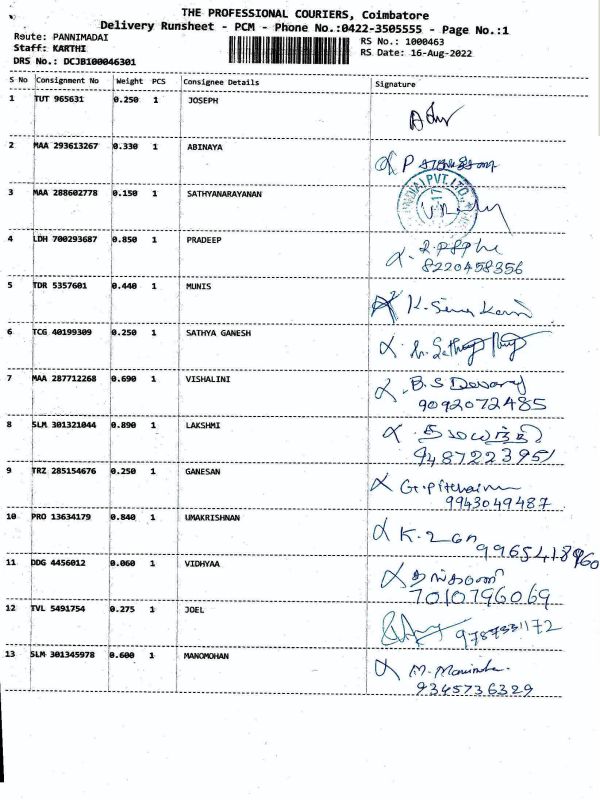 THE PROFESSIONAL COURIERS, Coimbatore
Delivery Runsheet - PCM - Phone No.:0422-3505555 - Page No.:1
Route: PANNIMADAI
RS No.: 1000463
Staff: KARTHI
RS Date: 16-Aug-2022
DRS No.: DCJB100046301
S No Consignment No Weight PCS Consignee Details Signature
1 TUT 965631 0.250 1 JOSEPH
2 MAA 293613267 0.330 1 ABINAYA
3 MAA 288602778 0.150 1 SATHYANARAYANAN
(INDIA) PVT. LTD.
4 LDH 700293687 0.850 1 PRADEEP
8220458356
5 TDR 5357601 0.440 1 MUNIS
6 TCG 40199309 0.250 1 SATHYA GANESH
7 MAA 287712268 0.690 1 VISHALINI B.S
9092072485
8 SLM 301321044 0.890 1 LAKSHMI
9487223951
9 TRZ 285154676 0.250 1 GANESAN
9943049487
10 PRO 13634179 0.840 1 UMAKRISHNAN K.
11 DDG 4456012 0.060 1 VIDHYAA
7010796069
12 TVL 5491754 0.275 1 JOEL
13 SLM 301345978 0.600 1 MANOMOHAN M.
9345736329